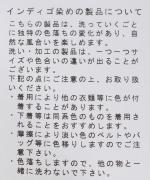 インディゴ染めの製品について
こちらの製品は、洗っていくごと
に独特の色落ちの変化があり、自
然な風合いを楽しめます。
洗い・加工の製品は、一つ一つサ
イズや色合いの違いが出ることが
ございます。
下記の点にご注意の上、お取り扱
いください。
・着用により他の衣類等に色が付
着することがあります。
・下着等は同系色のものを着用さ
れることをおすすめします。
・摩擦により淡い色のベルトやバ
ッグ等に色移りしますのでご注意
下さい。
・色落ちしますので、他の物と一
緒に洗わないで下さい。